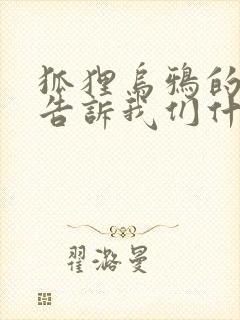 狐狸烏鴉的
告訴我们什
翟潞曼